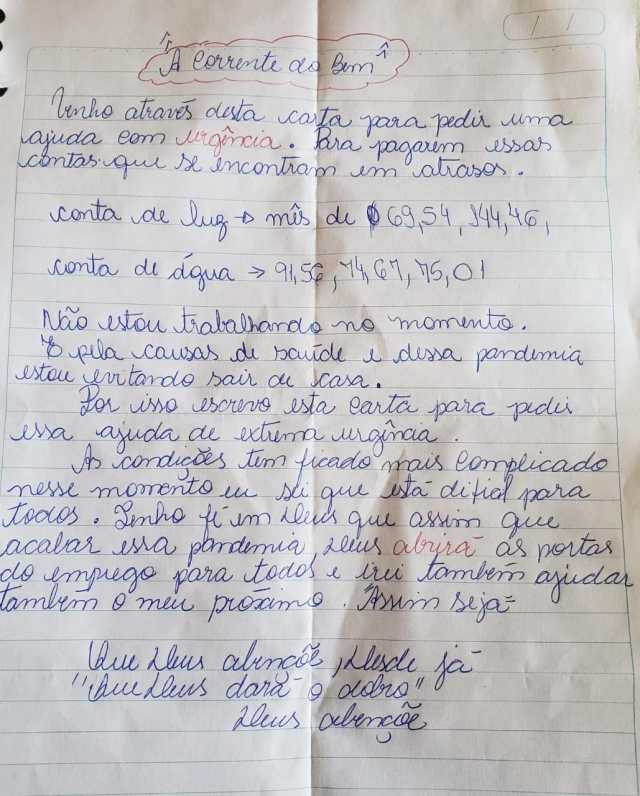 "A Corrente do Bem"
Venho através desta carta para pedir uma
ajuda com urgência. Para pagarem essas
contas que se encontram em atrasos.
conta de luz → mês de 69,54, 144,46,
conta de água → 91,56, 74,67, 75,01
Não estou trabalhando no momento.
E pela causas de saúde e dessa pandemia
estou evitando sair de casa.
Por isso escrevo esta carta para pedir
essa ajuda de extrema urgência.
As condições tem ficado mais complicado
nesse momento eu sei que está difial para
todos. Tenho fé em Deus que assim que
acabar essa pandemia, Deus abrirá as portas
do emprego para todos e irei também ajudar
também o meu próximo. Assim seja=
Que Deus abençõe, Desde já
"Que Deus dará o dobro"
Deus abençõe